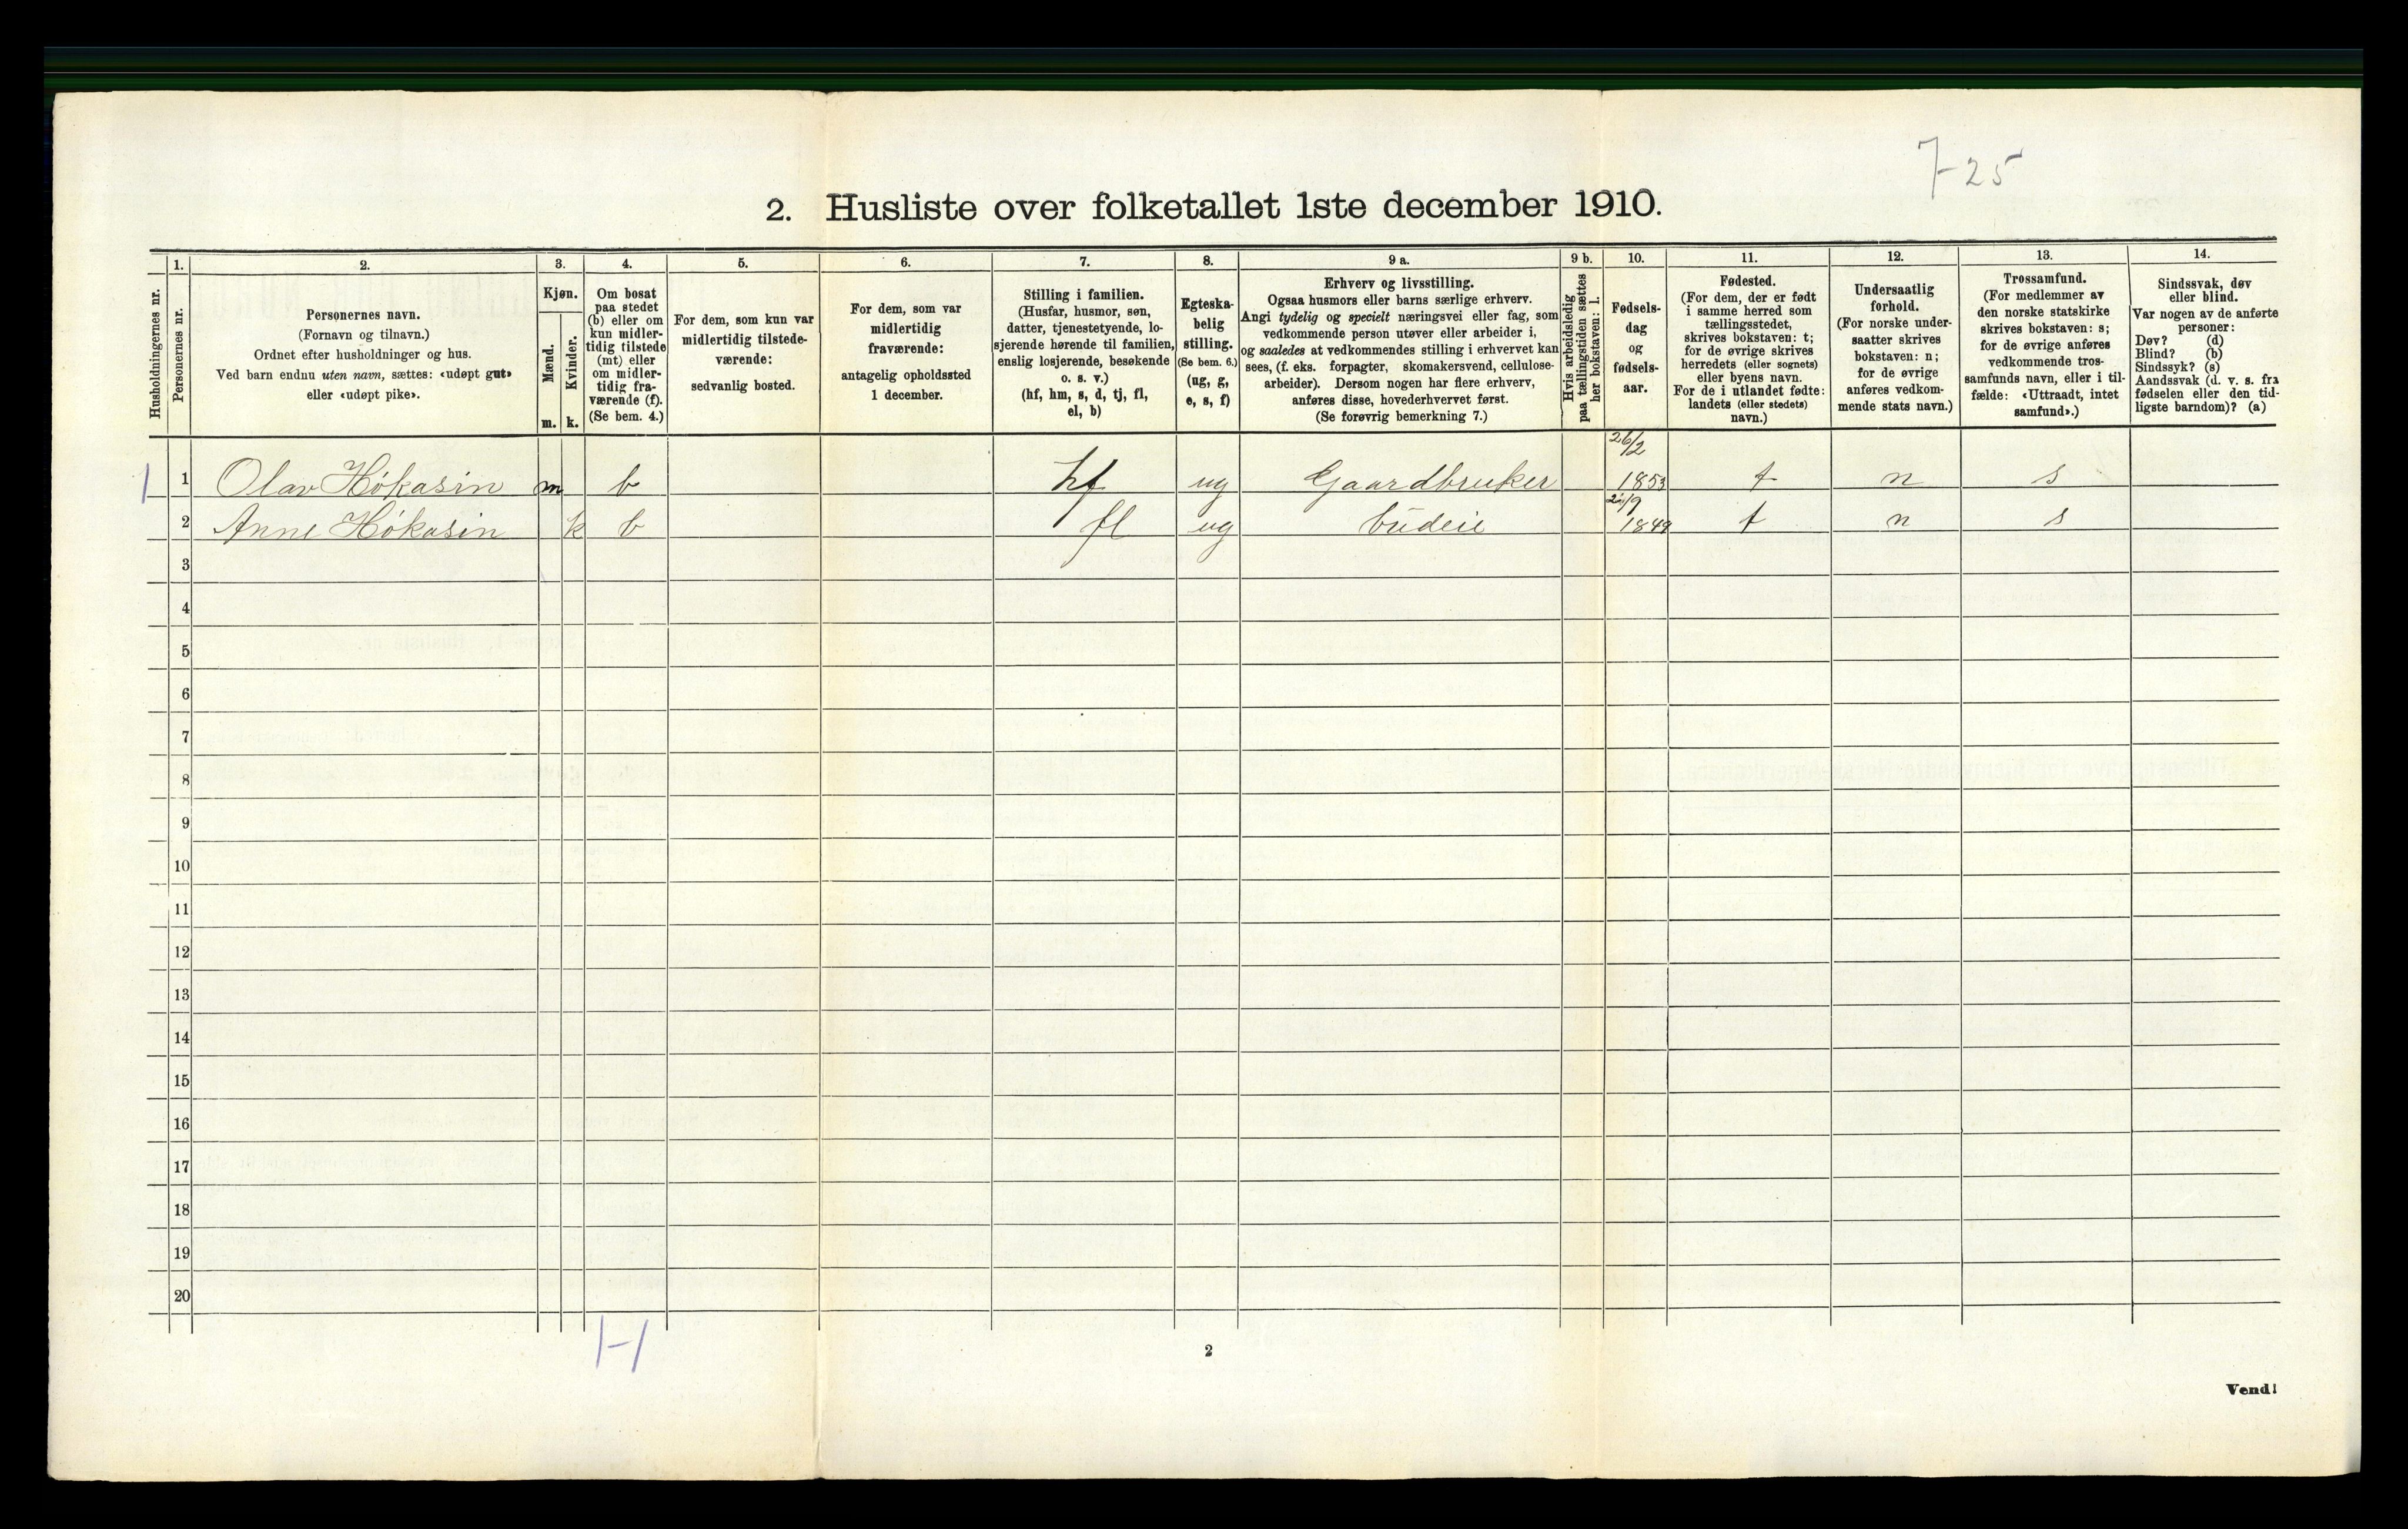 7-25
2. Husliste over folketallet 1ste december 1910.
Husholdningernes nr.
1.
Personernes nr.
2.
Personernes navn.
(Fornavn og tilnavn.)
Ordnet efter husholdninger og hus.
Ved barn endnu uten navn, sættes: «udøpt gut»
eller «udøpt pike».
3.
Kjøn.
Mænd.
Kvinder.
m. k.
4.
Om bosat
paa stedet
(b) eller om
kun midler-
tidig tilstede
(mt) eller
om midler-
tidig fra-
værende (f).
(Se bem. 4.)
5.
For dem, som kun var
midlertidig tilstede-
værende:
sedvanlig bosted.
6.
For dem, som var
midlertidig
fraværende:
antagelig opholdssted
1 december.
7.
Stilling i familien.
(Husfar, husmor, søn,
datter, tjenestetyende, lo-
sjerende hørende til familien,
enslig losjerende, besøkende
o. s. v.)
(hf, hm, s, d, tj, fl,
el, b)
8.
Egteska-
belig
stilling.
(Se bem. 6.)
(ug, g,
e, s, f)
9 a.
Erhverv og livsstilling.
Ogsaa husmors eller barns særlige erhverv.
Angi tydelig og specielt næringsvei eller fag, som
vedkommende person utøver eller arbeider i,
og saaledes at vedkommendes stilling i erhvervet kan
sees, (f. eks. forpagter, skomakersvend, cellulose-
arbeider). Dersom nogen har flere erhverv,
anføres disse, hovederhvervet først.
(Se forøvrig bemerkning 7.)
9 b.
Hvis arbeidsledig
paa tællingstiden sættes
her bokstaven: l.
10.
Fødsels-
dag
og
fødsels-
aar.
11.
Fødested.
(For dem, der er født
i samme herred som
tællingsstedet,
skrives bokstaven: t;
for de øvrige skrives
herredets (eller sognets)
eller byens navn.
For de i utlandet fødte:
landets (eller stedets)
navn.)
12.
Undersaatlig
forhold.
(For norske under-
saatter skrives
bokstaven: n;
for de øvrige
anføres vedkom-
mende stats navn.)
13.
Trossamfund.
(For medlemmer av
den norske statskirke
skrives bokstaven: s;
for de øvrige anføres
vedkommende tros-
samfunds navn, eller i til-
fælde: «Uttraadt, intet
samfund».)
14.
Sindssvak, døv
eller blind.
Var nogen av de anførte
personer:
Døv? (d)
Blind? (b)
Sindssyk? (s)
Aandssvak (d. v. s. fra
fødselen eller den tid-
ligste barndom)? (a)
26/2
1 1 Olav Hókasin m b hf ug Gaardbruker 1853 t n s
2 Anne Hókasin k b fl ug Budeie 1849 t n s
3
4
5
6
7
8
9
10
11
12
13
14
15
16
17
18
19
20
1-1
2
Vend!